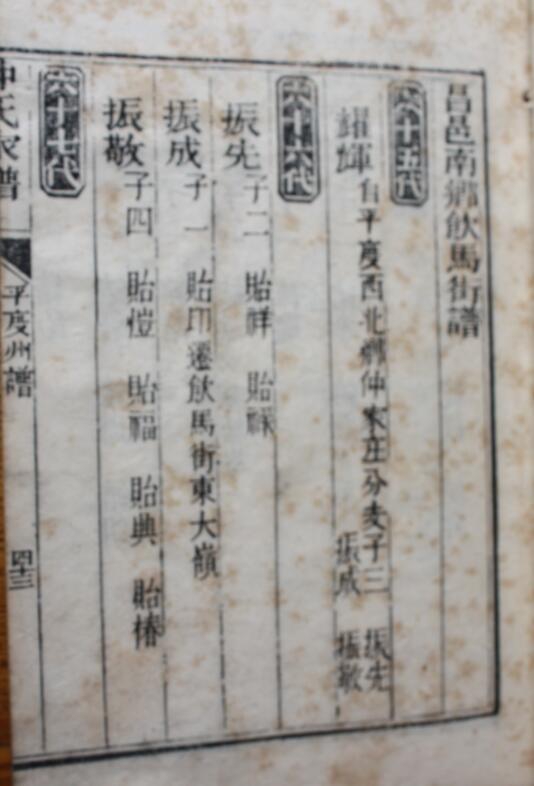 昌邑南鄉飲馬街譜
六十五代
耀輝 自平度西北鄉仲家庄分支子三 振先 振成 振敬
六十六代
振先 子二 貽祥 貽祿
振成 子一 貽印遷飲馬街東大嶺
振敬 子四 貽愷 貽福 貽典 貽椿
六十七代
仲氏家譜 平度州譜 四十三